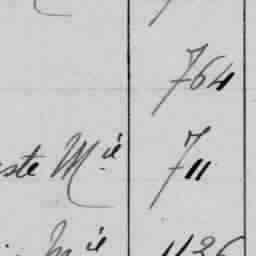 764
ste Mie 711
Mie 1126